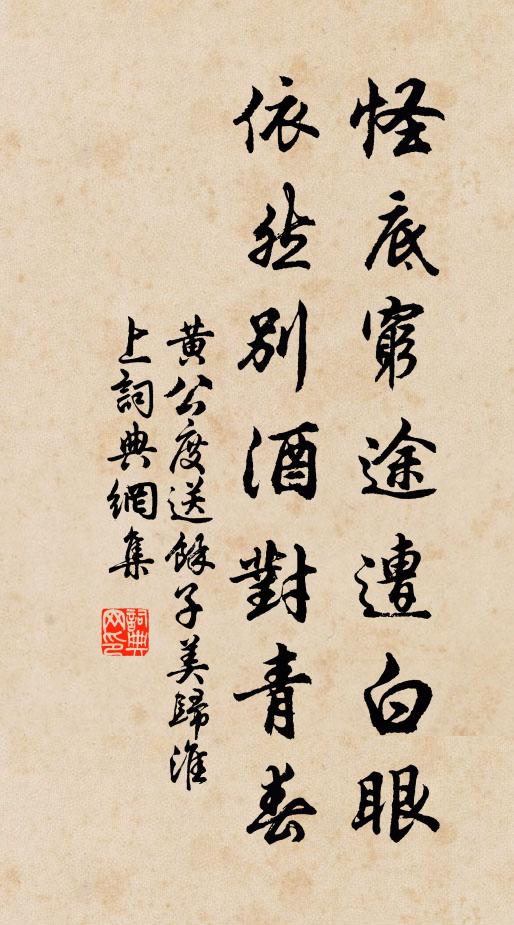 怪底窮途遭白眼
依然別酒對青春
黃公度送餘子美歸淮
上詞典網集
詞典網印